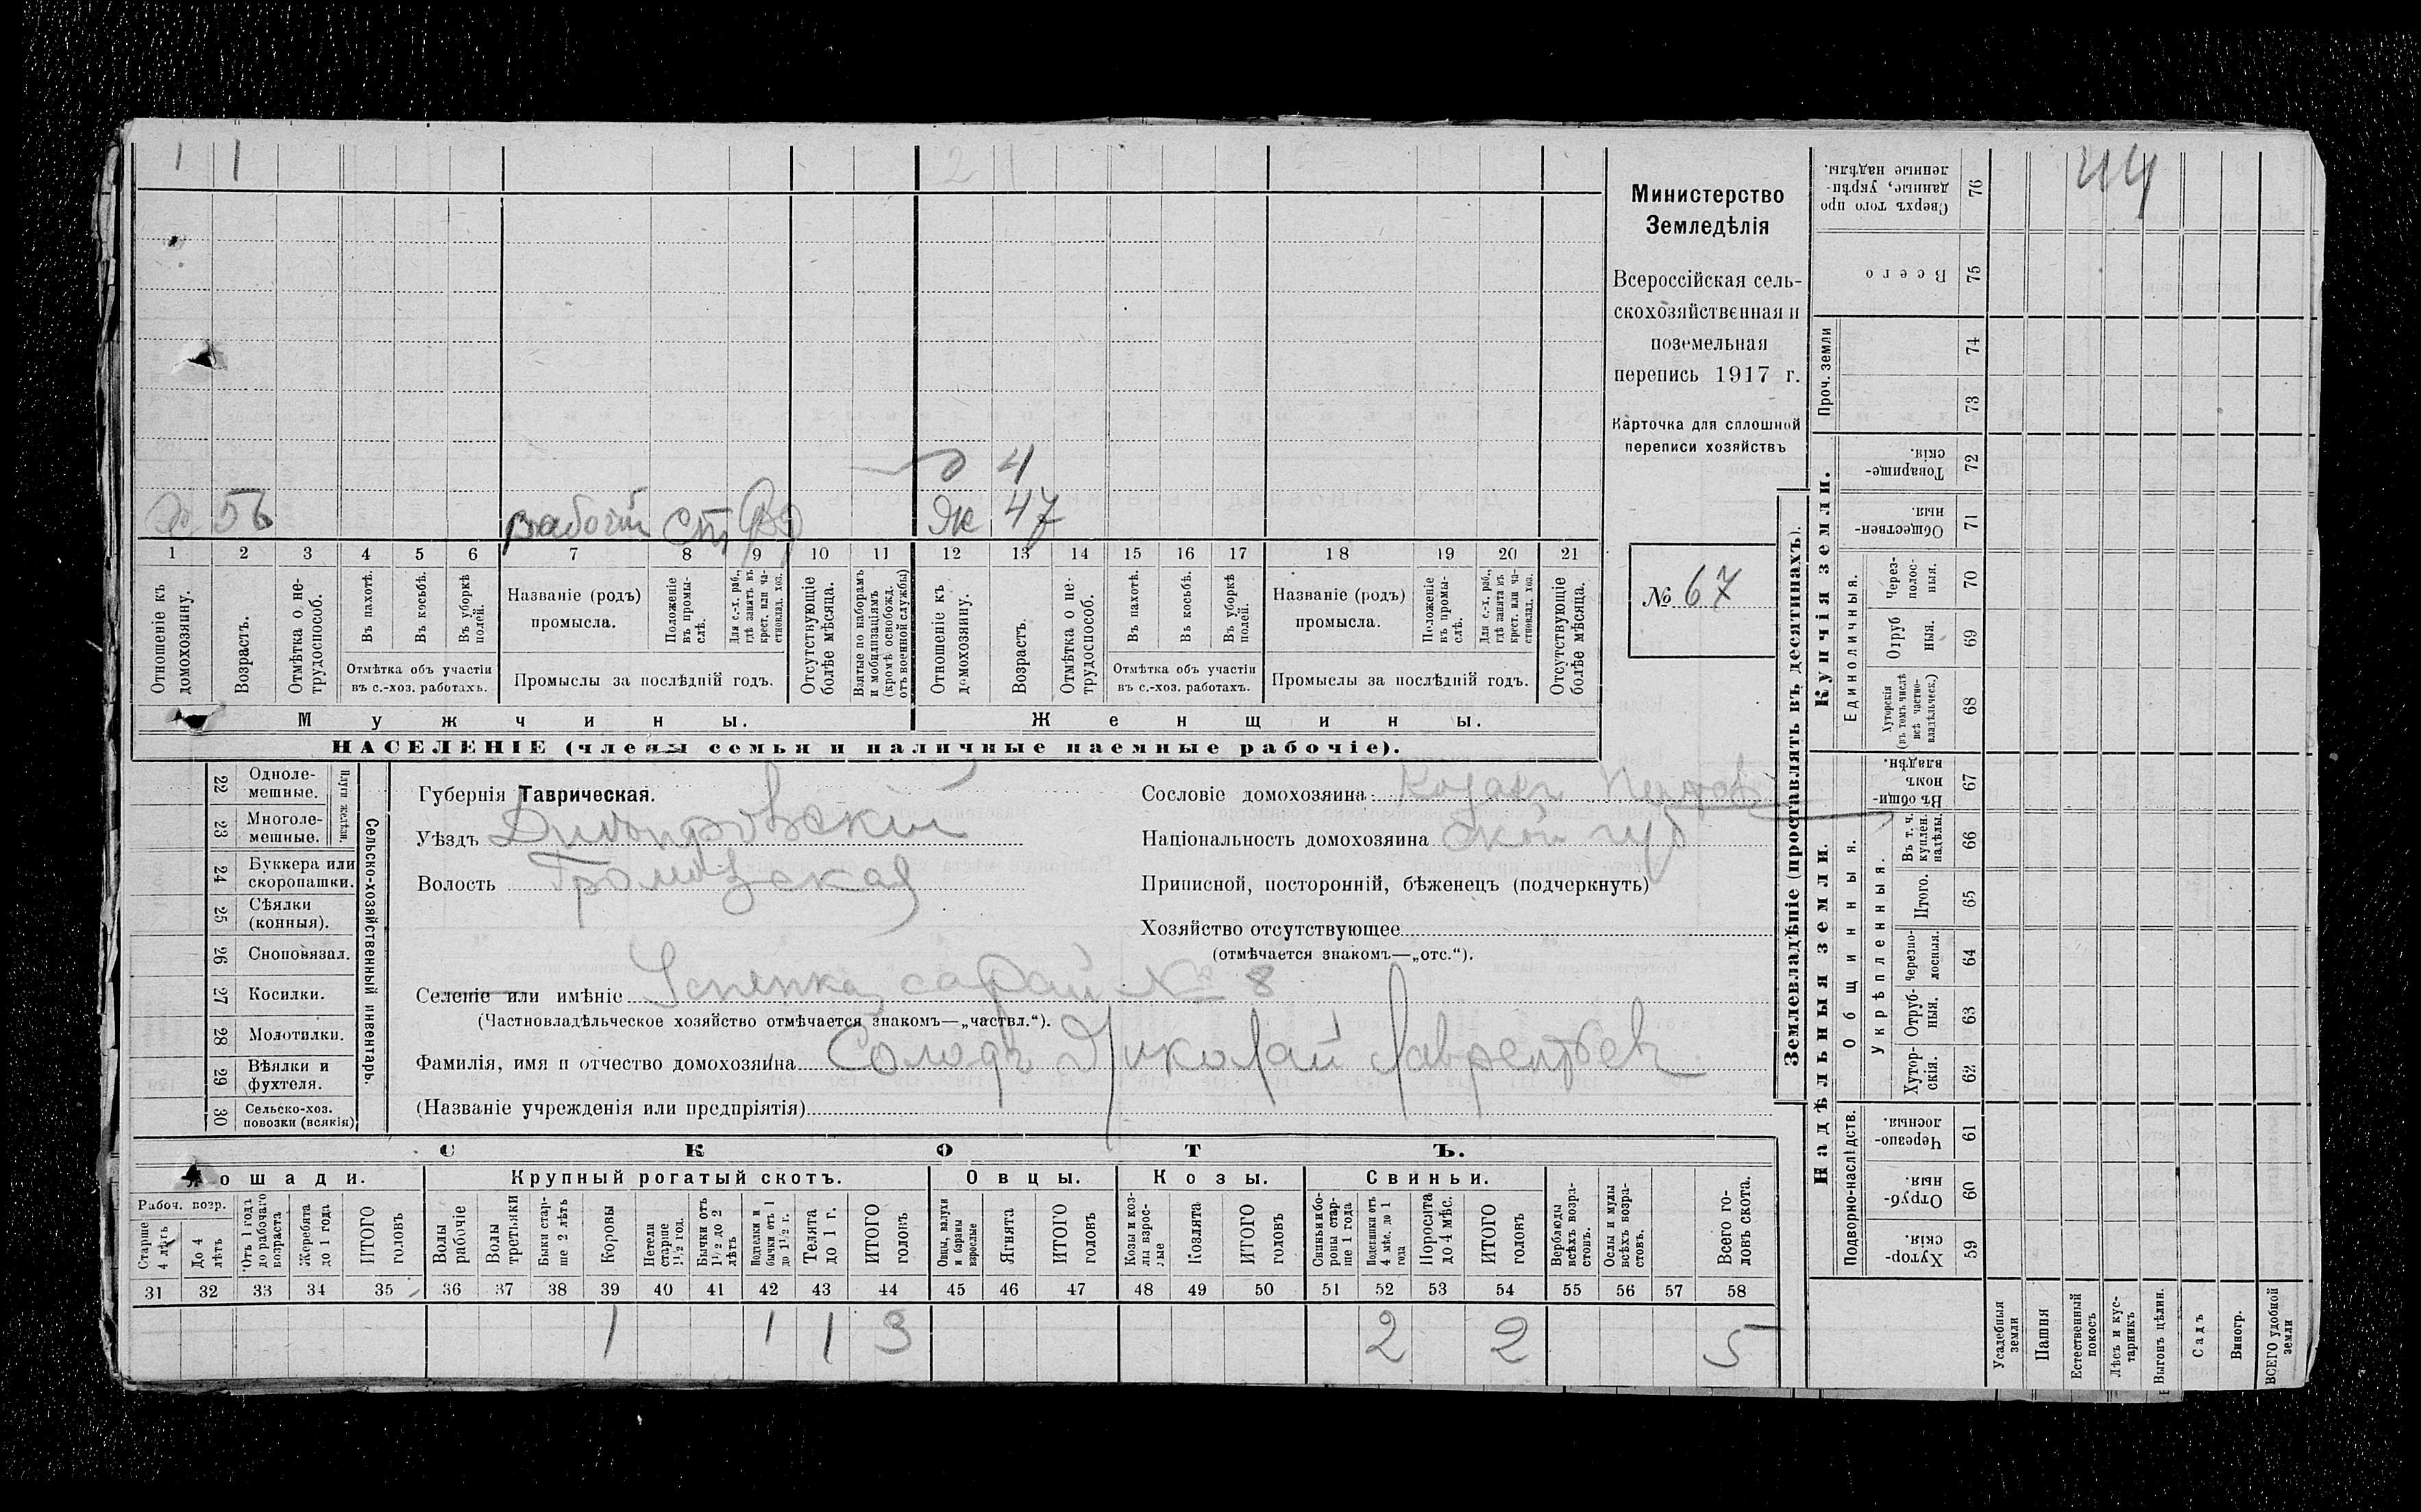 1 1 2 1
44
д 4
Х. 56 рабочій ст. Як 47
1 2 3 4 5 6 7 8 9 10 11 12 13 14 15 16 17 18 19 20 21
Отношеніе къ домохозяину.
Возрастъ.
Отмѣтка о не-трудоспособ.
Въ пахотѣ.
Въ косьбѣ.
Въ уборкѣ полей.
Отмѣтка объ участіи
въ с.-хоз. работахъ.
Названіе (родъ)
промысла.
Положеніе въ промы-слѣ.
Для с.-х. раб., гдѣ занятъ въ крест. или ча-стновлад. хоз.
Промыслы за послѣдній годъ.
Отсутствующіе болѣе мѣсяца.
Взятые по наборамъ и мобилизаціямъ (кромѣ освобожд. отъ военной службы)
Отношеніе къ домохозяину.
Возрастъ.
Отмѣтка о не-трудоспособ.
Въ пахотѣ.
Въ косьбѣ.
Въ уборкѣ полей.
Отмѣтка объ участіи
въ с.-хоз. работахъ.
Названіе (родъ)
промысла.
Положеніе въ промы-слѣ.
Для с.-х. раб., гдѣ занята въ крест. или ча-стновлад. хоз.
Промыслы за послѣдній годъ.
Отсутствующіе болѣе мѣсяца.
Мужчины. Женщины.
НАСЕЛЕНІЕ (члены семьи и наличные наемные рабочіе).
Министерство
Земледѣлія
Всероссійская сель-
скохозяйственная и
поземельная
перепись 1917 г.
Карточка для сплошной
переписи хозяйствъ
№ 67
22 Одноле-мешные.
23 Многоле-мешные.
Плуги желѣзн.
24 Буккера или скоропашки.
25 Сѣялки (конныя).
26 Сноповязал.
27 Косилки.
28 Молотилки.
29 Вѣялки и фухтеля.
30 Сельско-хоз. повозки (всякія)
Сельско-хозяйственный инвентарь.
Губернія Таврическая.
Уѣздъ Днѣпровскій
Волость
Селеніе или имѣніе Успенка, сарай № 8
(Частновладѣльческое хозяйство отмѣчается знакомъ—„частвл.“).
Фамилія, имя и отчество домохозяина Солодъ Николай Лаврентьев
(Названіе учрежденія или предпріятія)
Сословіе домохозяина Козакъ
Національность домохозяина ской губ
Приписной, посторонній, бѣженецъ (подчеркнуть)
Хозяйство отсутствующее
(отмѣчается знакомъ—„отс.“).
СКОТЪ.
Лошади. Крупный рогатый скотъ. Овцы. Козы. Свиньи.
Рабоч. возр.
Старше 4 лѣтъ
До 4 лѣтъ
Отъ 1 года до рабочаго возраста
Жеребята до 1 года
ИТОГО головъ
Волы рабочіе
Волы третьяки
Быки стар-ше 2 лѣтъ
Коровы
Нетели старше 1 1/2 год.
Бычки отъ 1 1/2 до 2 лѣтъ
Подтелки и бычки отъ 1 до 1 1/2 г.
Телята до 1 г.
ИТОГО головъ
Овцы, валухи и бараны взрослые
Ягнята
ИТОГО головъ
Козы и коз-лы взрос-лые
Козлята
ИТОГО головъ
Свиньи и бо-ровы стар-ше 1 года
Подсвинки отъ 4 мѣс. до 1 года
Поросята до 4 мѣс.
ИТОГО головъ
Верблюды всѣхъ возра-стовъ.
Ослы и мулы всѣхъ возра-стовъ.
Всего го-ловъ скота.
31 32 33 34 35 36 37 38 39 40 41 42 43 44 45 46 47 48 49 50 51 52 53 54 55 56 57 58
1 1 1 3 2 2 5
Землевладѣніе (проставлять въ десятинахъ).
Сверхъ того про данные, укрѣ-пленные надѣлы. 76
Всего 75
Проч. земли
74
73
Купчія земли.
Товарище-скія. 72
Обществен-ныя. 71
Единоличныя.
Через-полос-ныя. 70
Отруб ныя. 69
Хуторскія (въ томъ числѣ всѣ частно-владѣльческ.) 68
Надѣльныя земли.
Общинныя.
Въ общи-номъ владѣн. 67
Укрѣпленныя.
Въ т. ч. куплен. надѣлы. 66
Итого. 65
Черезпо-лосныя. 64
Отруб-ныя. 63
Хутор-скія. 62
Подворно-наслѣдств.
Черезпо-лосныя. 61
Отруб-ныя. 60
Хутор-скія. 59
Усадебныя земли
Пашня
Естественный покосъ
Лѣсъ и кус-тарникъ
Выгонъ цѣлин.
Садъ
Виногр.
ВСЕГО удобной земли